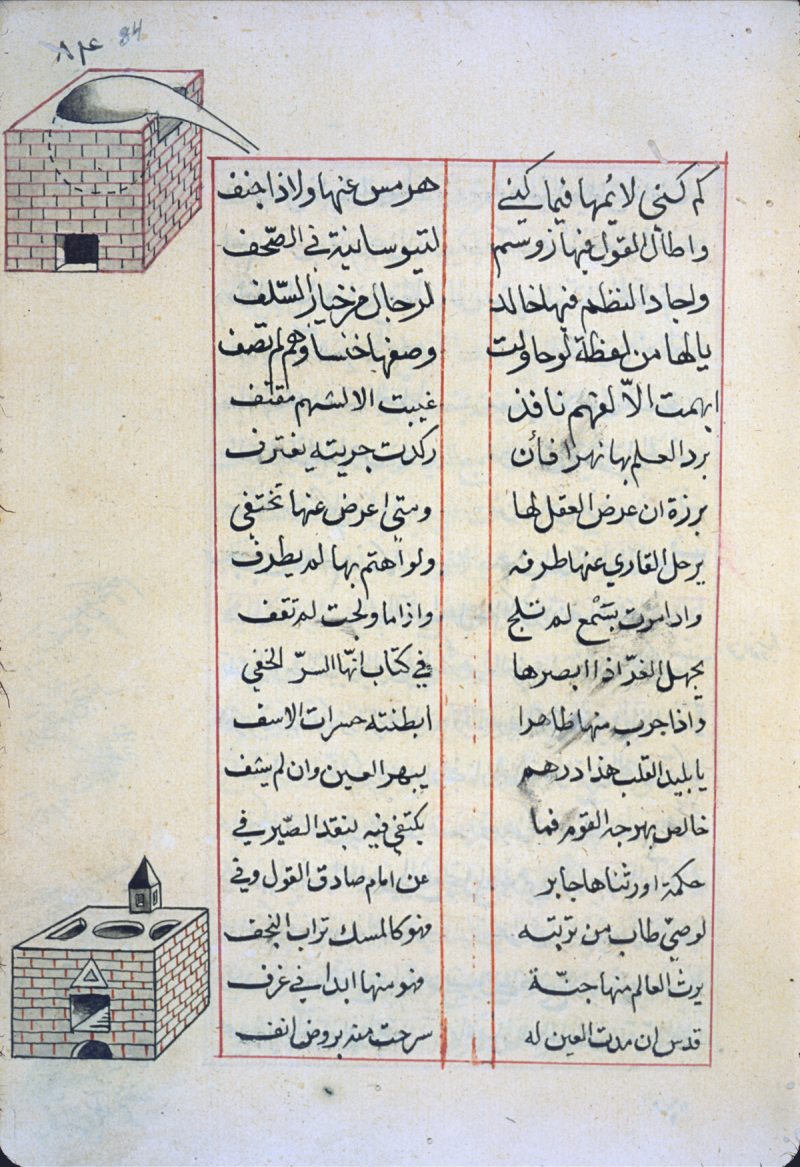 ٨۴ 84
كم كنى لائمها فيما كنى هرمس عنها ولا ذا جنف
واطال القول فيها زوسم لتيوسانية في الصّحف
واجاد النظم فيها خالد لرجال من خيار السّلف
يالها من لفظة لو حاولت وصفها خنساؤهم لم تصف
ابهمت الاّ لفهم نافذ غيبت الا لشهم مقتف
يرد العلم بها نهرا فأن ركدت جريته يغترف
برزة ان عرض العقل لها ومتى اعرض عنها تختفي
يرحل القاري عنها طرفه ولو اهتم بها لم يطرف
واذا مرت بسَمْع لم تلج واذا ما ولجت لم تقف
يجهل الغرّ اذا ابصرها في كتاب انّها السرّ الخفي
واذا جرب منها ظاهرا ابطنته حسرات الاسف
يا بليد القلب هذا درهم يبهر العين وان لم يشف
خالص بهرجه القوم فما يكتفي فيه بنقد الصّيرفي
حكمة اورثناها جابر عن امام صادق القول وفي
لوصيّ طاب من تربته فهو كالمسك تراب النجف
يرث العالم منها جنّة فهو منها ابدا في غرف
قدس ان مدت العين له سرحت منه بروض انف